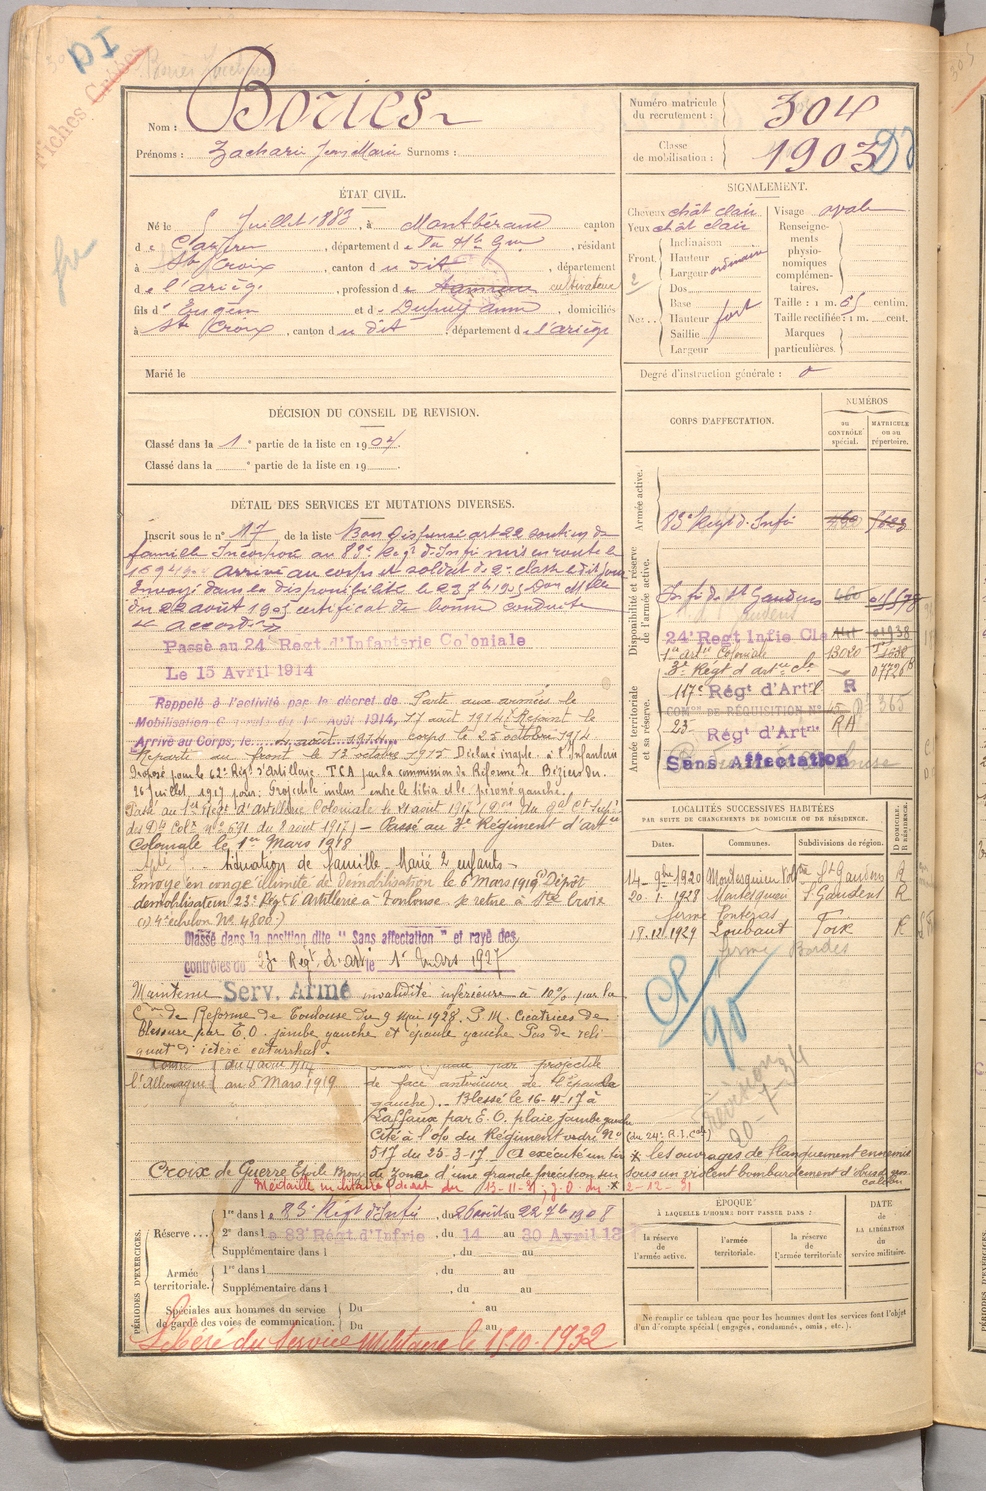 DI
Fiches
Nom : Bories
Prénoms : Zacharie Jean Marie Surnoms :
Numéro matricule du recrutement : 304
Classe de mobilisation : 1903
ÉTAT CIVIL.
Né le 5 Juillet 1883, à Montbéraud canton
d e Cazères, département d e la Hte Gne, résidant
à Ste Croix, canton d u dit, département
d e l'ariège, profession d e cultivateur
fils d' Eugène et d e Dupuy anna, domiciliés
à Ste Croix, canton d u dit, département d e l'ariège
Marié le
SIGNALEMENT.
Cheveux chât clair
Yeux chât clair
Front. Inclinaison
Hauteur
Largeur ordinaire
Nez... Dos
Base
Hauteur fort
Saillie
Largeur
Visage ovale
Renseignements physionomiques complémentaires.
Taille : 1 m. 65 centim.
Taille rectifiée : 1 m. cent.
Marques particulières.
Degré d'instruction générale : 0
DÉCISION DU CONSEIL DE REVISION.
Classé dans la 1e partie de la liste en 1904.
Classé dans la e partie de la liste en 19
CORPS D'AFFECTATION.
NUMÉROS
au CONTRÔLE spécial.
MATRICULE ou au répertoire.
Armée active.
83e Regt d'Infie
Disponibilité et réserve de l'armée active.
Infie de St Gaudens
24e Regt Infie Cle
1er artie Coloniale 13020
3e Régt d'artie cle
Armée territoriale et sa réserve.
117e Régt d'Artie R
COMon DE RÉQUISITION No 15 365
23e Régt d'Artie RA
Sans Affectation
DÉTAIL DES SERVICES ET MUTATIONS DIVERSES.
Inscrit sous le no 17 de la liste Bon Dispensé art 22 soutien de
famille Incorporé au 83e Regt d'Infie mis en route le
arrivé au corps et soldat de 2e classe le dit jour
Envoyé dans la disponibilité le 23 7bre 1905
du 22 août 1905 certificat de bonne conduite
"accordé"
Passé au 24e Regt d'Infanterie Coloniale
Le 15 Avril 1914
Rappelé à l'activité par le décret de
Mobilisation Générale du 1er Août 1914,
Arrivé au Corps, le 4 août 1914
Parti aux armées le
11 août 1914. Rejoint le
corps le 25 octobre 1914
Reparti au front le 13 octobre 1915 Déclaré inapte à l'Infanterie
Proposé pour le 62e Régt d'Artillerie. TCA par la commission de Réforme de Béziers du
26 juillet 1917 pour : Projectile inclus entre le tibia et le péroné gauche.
Passé au 1er Regt d'Artillerie Coloniale le 11 août 1917
du 8 août 1917) — Passé au 3e Régiment d'artie
Coloniale le 1er Mars 1918
situation de famille — Marié 2 enfants —
Envoyé en congé illimité de démobilisation le 6 Mars 1919 (1) Dépôt
démobilisateur 23e Régt d'Artillerie à Toulouse se retire à Ste Croix
(1) 4e échelon No 4800.)
Classé dans la position dite "Sans affectation" et rayé des
contrôles du 23e Regt d'art le 1er mars 1927
Maintenu Serv. Armé invalidité inférieure à 10% par la
Con de Réforme de Toulouse du 9 Mai 1928. P.M. Cicatrices de
blessure par E.O. jambe gauche et épaule gauche Pas de reli-
quat d'ictère catarrhal.
l'Allemagne du 4 août 1914
au 5 Mars 1919
par projectile
de face antérieure de l'épaule
gauche). Blessé le 16-4-17 à
Laffaux par E.O. plaie jambe gauche
Cité à l'o/d du Régiment ordre No (du 24e R.I.Cole)
517 du 25-3-17 "A exécuté un tir * les ouvrages de flanquement ennemis
Croix de Guerre Etoile Bronze de zone d'une grande précision sur sous un violent bombardement d'obus de gros calibre
Médaille militaire décret du 13-11-31, J.O. du * 2-12-31
LOCALITÉS SUCCESSIVES HABITÉES
PAR SUITE DE CHANGEMENTS DE DOMICILE OU DE RÉSIDENCE.
Dates. Communes. Subdivisions de région. D DOMICILE. R RÉSIDENCE.
14-9bre 1920 Montesquieu Volvestre St Gaudens R
20.1.1928 Montesquieu St Gaudens R
ferme
19.12.1929 Loubaut Foix R
ferme Bordes
CP/90
Révision
PÉRIODES D'EXERCICES.
Réserve... 1re dans le 83e Régt d'Infie, du 26 août au 22 7bre 1908
2e dans le 83e Régt d'Infrie, du 14 au 30 Avril
Supplémentaire dans l , du au
Armée territoriale. 1re dans l , du au
Supplémentaire dans l , du au
Spéciales aux hommes du service de garde des voies de communication. Du au
Du au
Libéré du Service Militaire le 15.10.1932
ÉPOQUE
À LAQUELLE L'HOMME DOIT PASSER DANS :
la réserve de l'armée active.
l'armée territoriale.
la réserve de l'armée territoriale
DATE de LA LIBÉRATION du service militaire.
Ne remplir ce tableau que pour les hommes dont les services font l'objet
d'un décompte spécial (engagés, condamnés, omis, etc.).